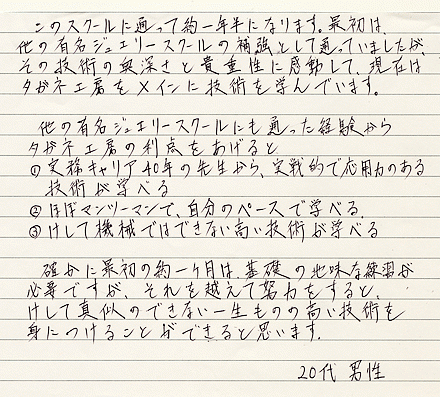 このスクールに通って約一年半になります。最初は、
他の有名ジュエリースクールの補強として通っていましたが、
その技術の奥深さと貴重性に感動して、現在は
タガネ工房をメインに技術を学んでいます。
他の有名ジュエリースクールにも通った経験から
タガネ工房の利点をあげると
①実務キャリア40年の先生から、実戦的で応用力のある
技術が学べる
②ほぼマンツーマンで、自分のペースで学べる
③けして機械ではできない高い技術が学べる
確かに最初の約一ヶ月は、基礎の地味な練習が
必要ですが、それを越えて努力をすると、
けして真似のできない一生ものの高い技術を
身につけることができると思います。
20代 男性